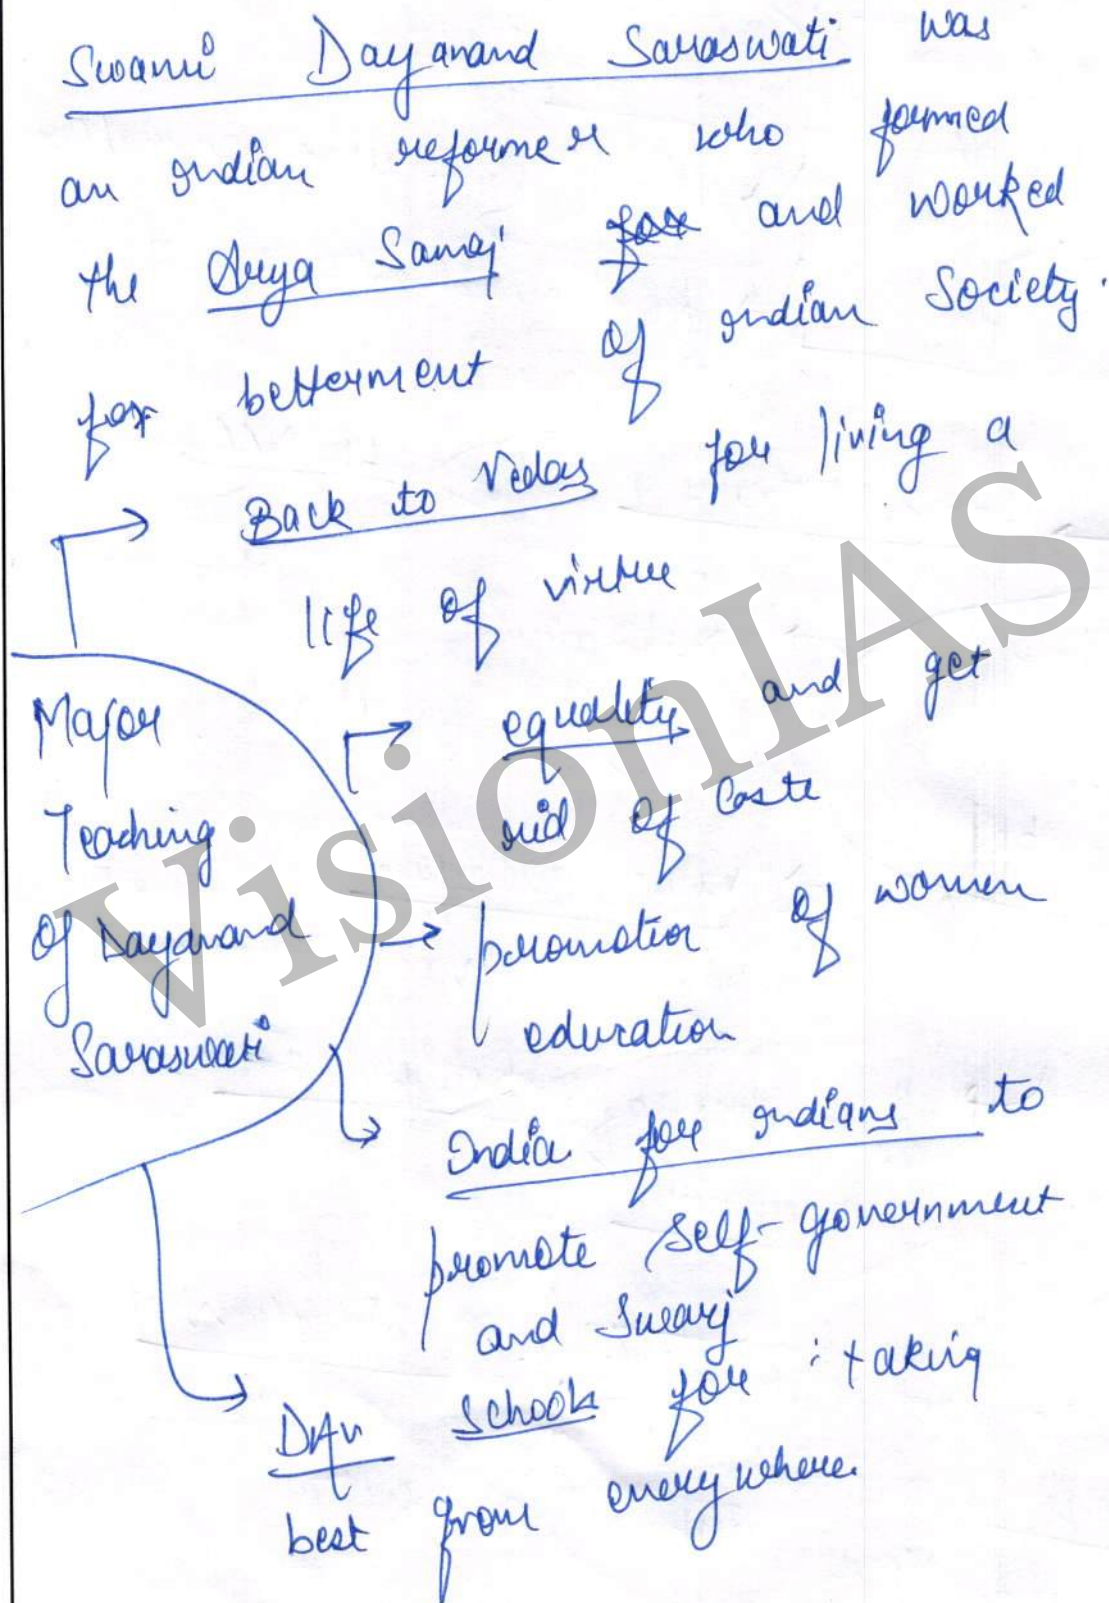 Swami Dayanand Saraswati was
an Indian reformer who formed
the Arya Samaj for and worked
for betterment of Indian Society.
Back to Vedas for living a
life of virtue
Major
Teaching
of Dayanand
Saraswati
equality and get
rid of Caste
promotion of women
education
India for Indians to
promote self-government
and Swaraj
DAV schools for taking
best from everywhere.
VisionIAS